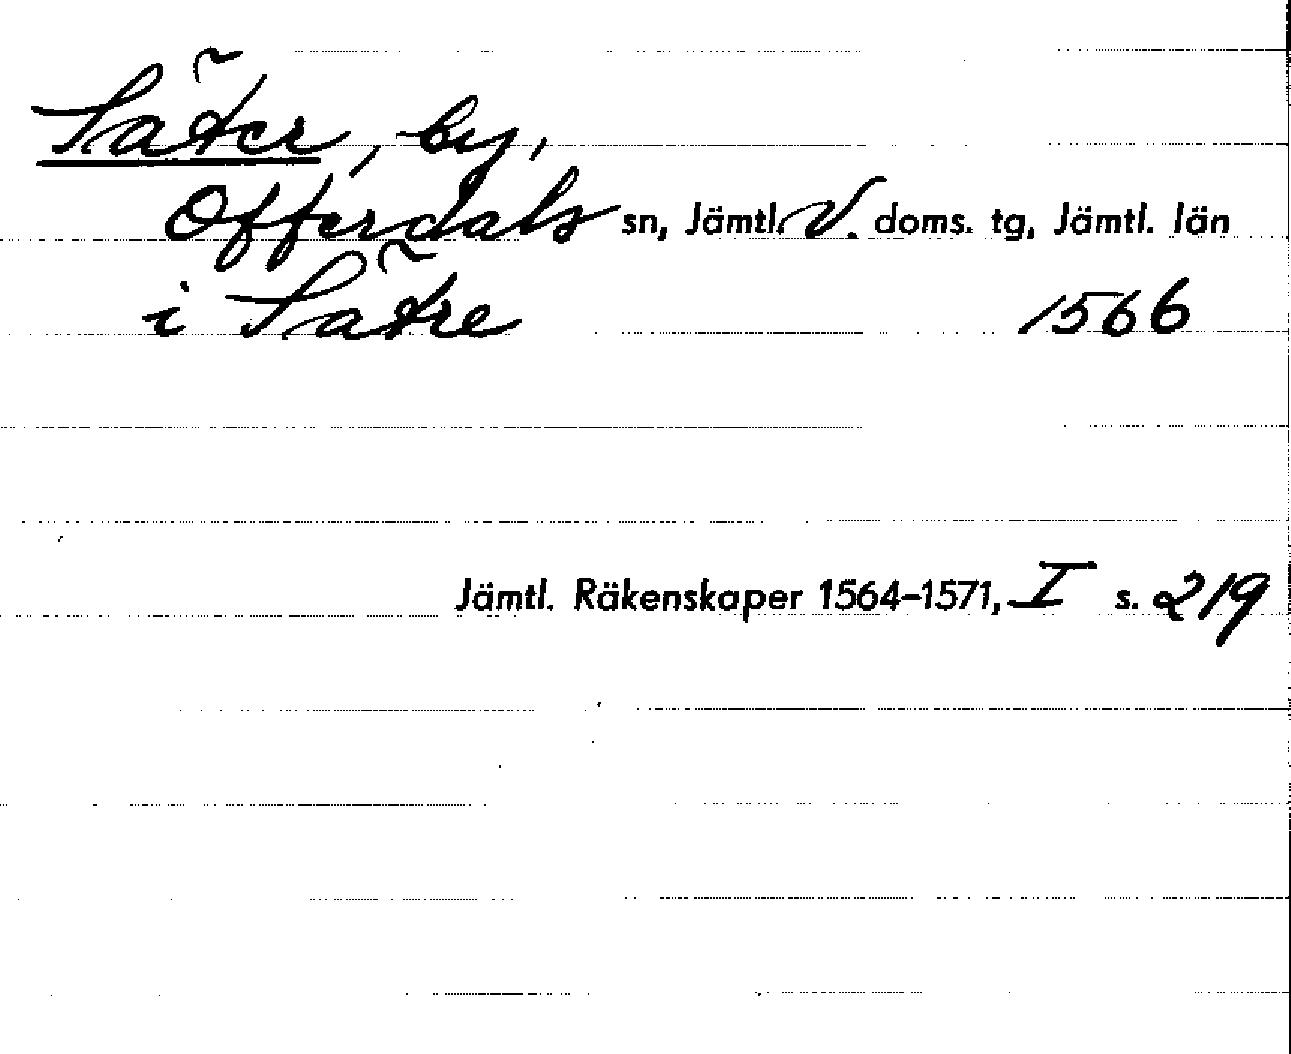 Säter, by,
Offerdals sn, Jämtl. V. doms. tg, Jämtl. län
i Sätre 1566
Jämtl. Räkenskaper 1564–1571, I s. 219